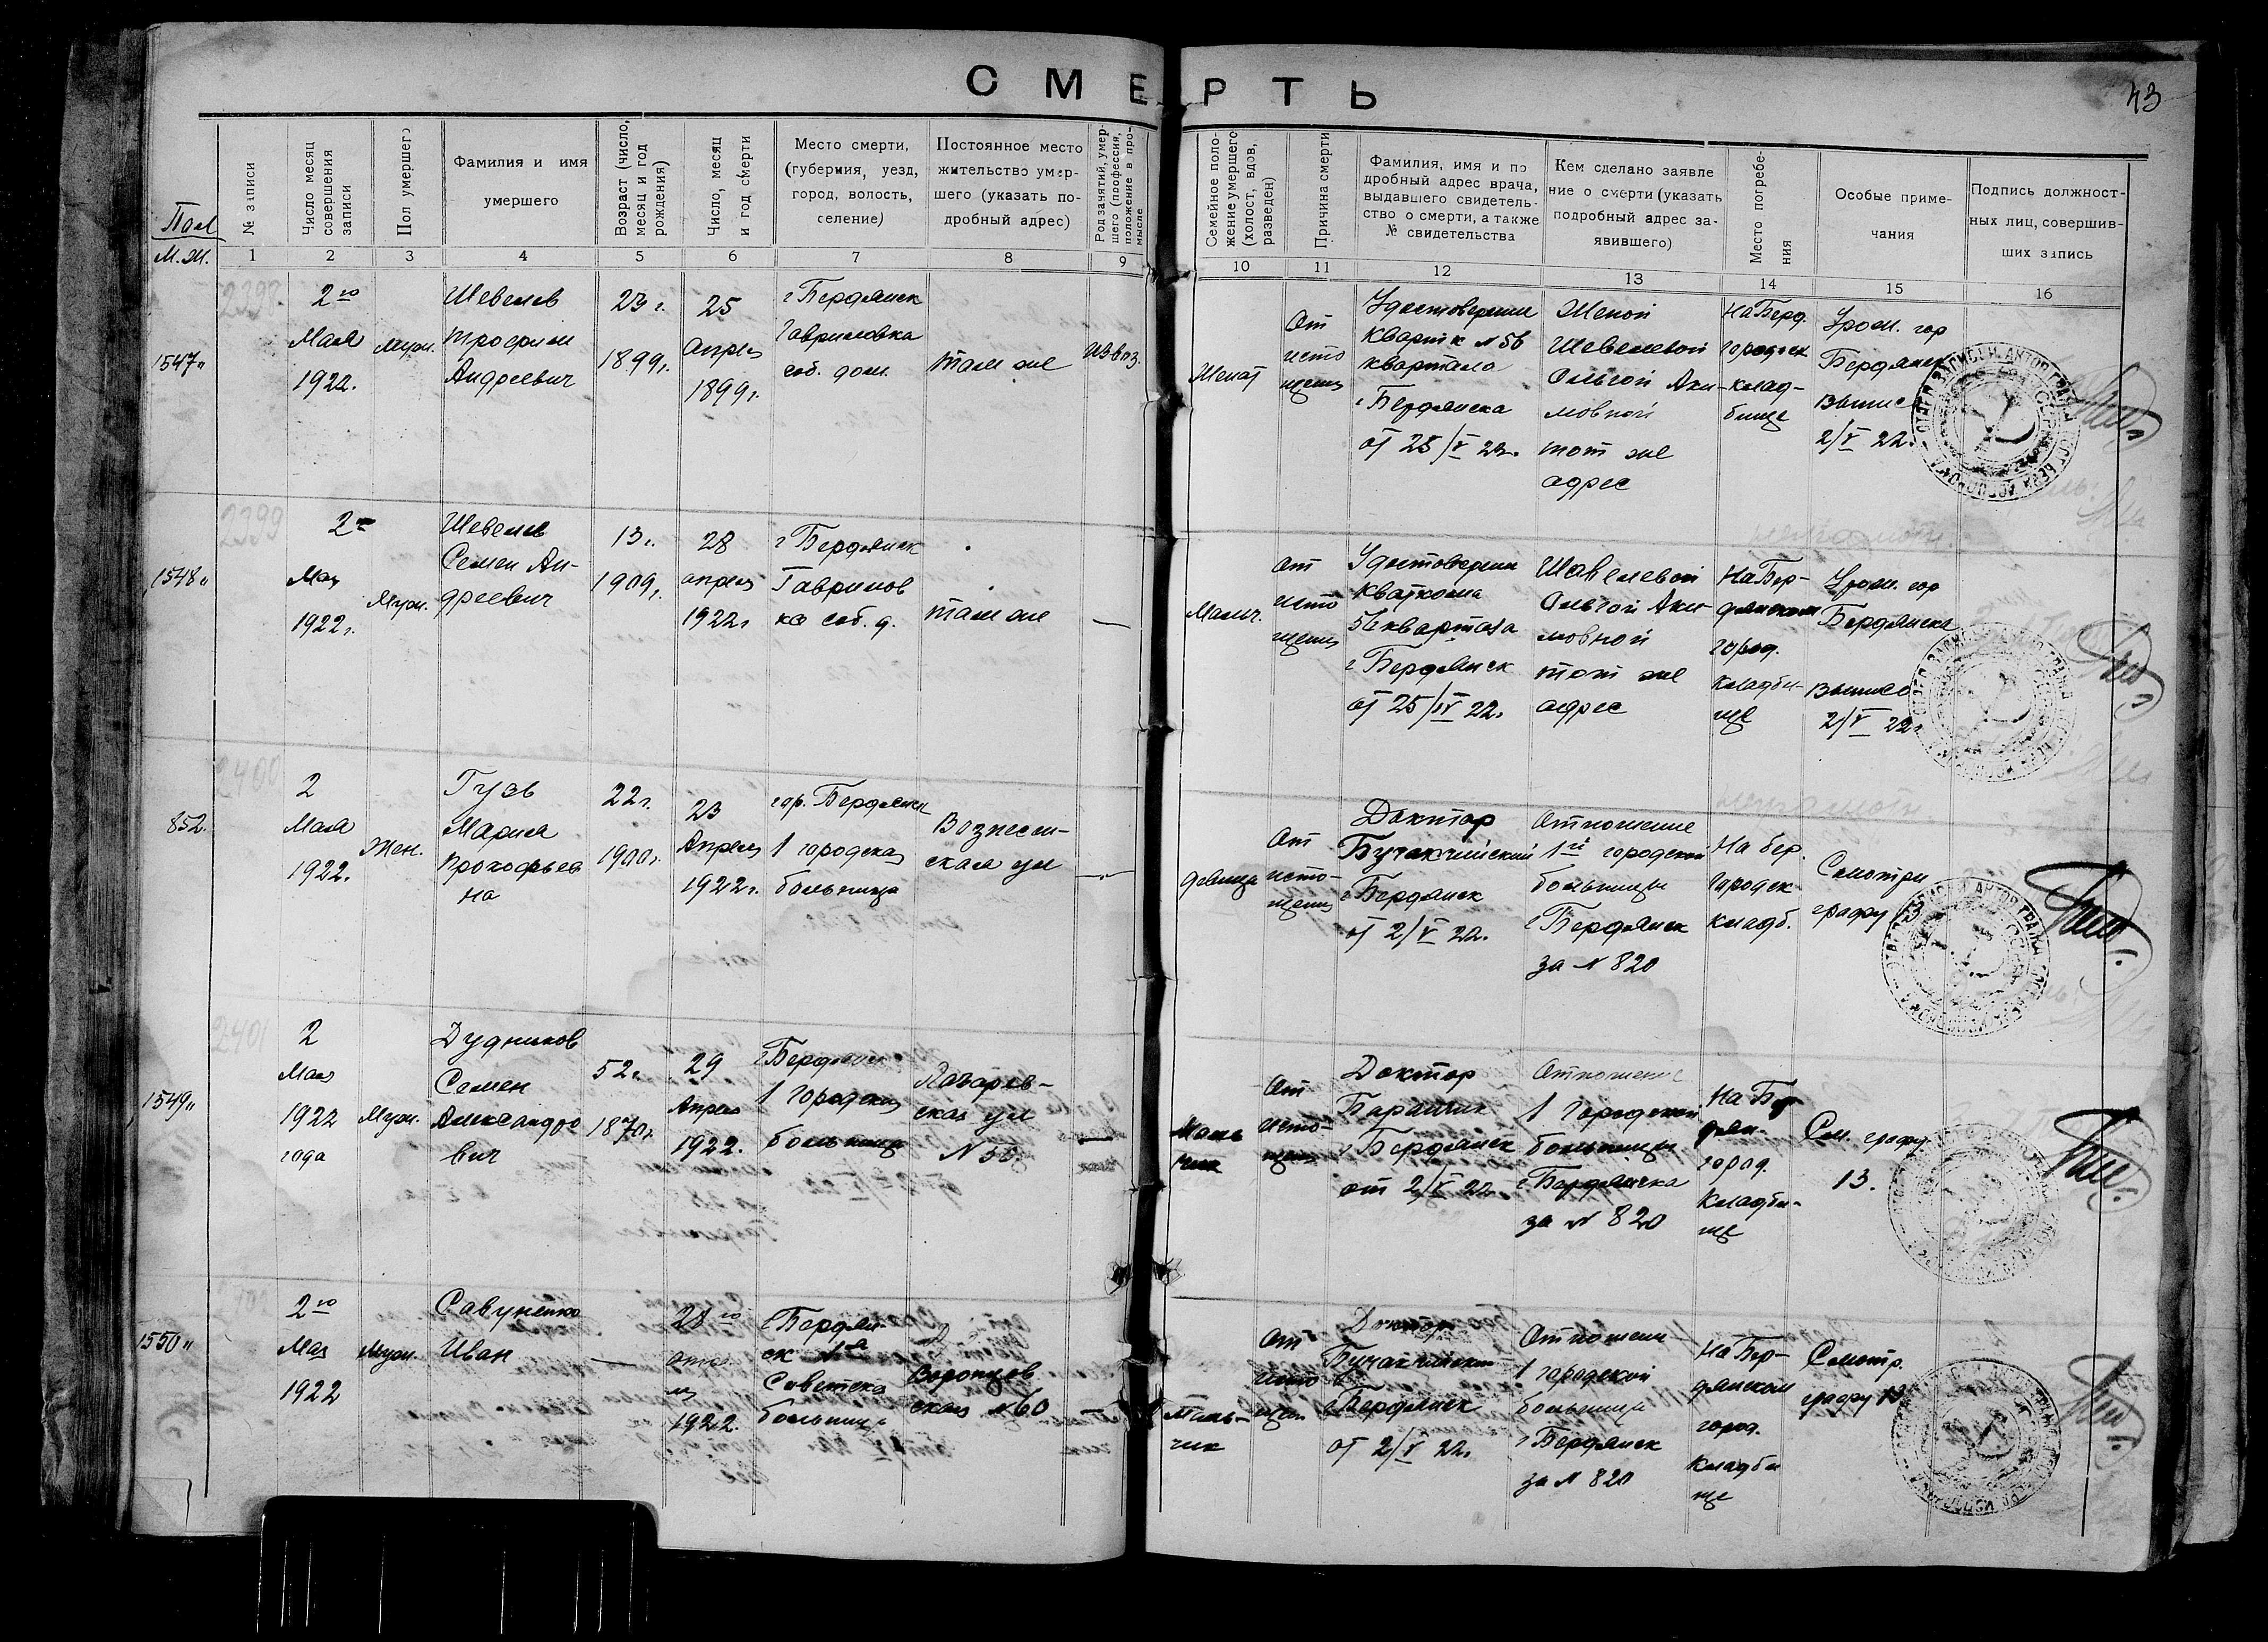 СМЕРТЬ
43
Пол
М. Ж.
№ записи
Число месяц
совершения
записи
Пол умершего
Фамилия и имя
умершего
Возраст (число,
месяц и год
рождения)
Число, месяц
и год смерти
Место смерти,
(губерния, уезд,
город, волость,
селение)
Постоянное место
жительство умер-
шего (указать по-
дробный адрес)
Род занятий, умер-
шего (профессия,
положение в про-
мысле
Семейное поло-
жение умершего
(холост, вдов,
разведен)
Причина смерти
Фамилия, имя и по
дробный адрес врача,
выдавшего свидетель-
ство о смерти, а также
№ свидетельства
Кем сделано заявле
ние о смерти (указать
подробный адрес за-
явившего)
Место погребе-
ния
Особые приме-
чания
Подпись должност-
ных лиц, совершив-
ших запись
1 2 3 4 5 6 7 8 9 10 11 12 13 14 15 16
2398
1547
2го
Мая
1922.
муж.
Шевелев
Трофим
Андреевич
23 г.
1899 г.
25
Апреля
1899 г.
г Бердянск
Гавриловка
соб. дом.
там же
извоз.
Женат
От
исто
щения
Удостоверение
Квартк № 56
квартала
г Бердянска
от 25/V 22.
Женой
Шевелевой
Ольгой Аки-
мовной
тот же
адрес
На Берд.
городск
клад-
бище
Урож. гор
Бердянск
Выпис
2/V 22.
2399
1548
2го
Мая
1922 г.
Муж.
Шевелев
Семен Ан-
дреевич
13 г.
1909 г.
28
апреля
1922 г
г Бердянск
Гаврилов
ка соб. д.
там же
—
Мальч.
От
исто
щения
Удостоверение
Кварткома
56 квартала
г Бердянск
от 25/IV 22.
Шевелевой
Ольгой Аки-
мовной
тот же
адрес
На Бер-
дянском
город.
кладби-
ще
Урож. гор
Бердянска
Выписо
2/V 22.
2400
852.
2
Мая
1922.
Жен.
Гузь
Мария
Прокофьев
на
22 г.
1900 г.
23
Апреля
1922 г.
гор. Бердянск
1 городская
больница
Вознесен-
ская ул
—
девица
От
исто-
щения
Доктор
Бучакчийский
г Бердянск
от 2/V 22.
Отношение
1й городской
больницы
г Бердянск
за № 820
На бер.
Городск
кладб.
Смотри
графу 13
2401
1549
2
Мая
1922
года
Муж.
Дудников
Семен
Александро
вич
52 г.
1870 г.
29
Апреля
1922.
г Бердянск
1 Городская
больница
Лазарев-
ская ул
№ 50
—
Маль
чик
От
исто-
щения
Доктор
Баранчик
г Бердянск
от 2/V 22
Отношение
1 Городской
больницы
г Бердянска
за № 820
На Бер
дян-
город.
Кладби-
ще
См. графу
13.
1550
2го
Мая
1922
Муж.
Савуненко
Иван
—
28го
1922.
г Бердян-
ск 1я
Советска
больница
Воронцов
ская № 60
—
Маль-
чик
От
исто
щен
Доктор
г Бердянск
от 2/V 22.
Отношени
1 городской
больница
г Бердянск
за № 820
На Бер-
дянском
город.
Кладби
ще
Смотр.
графу 13